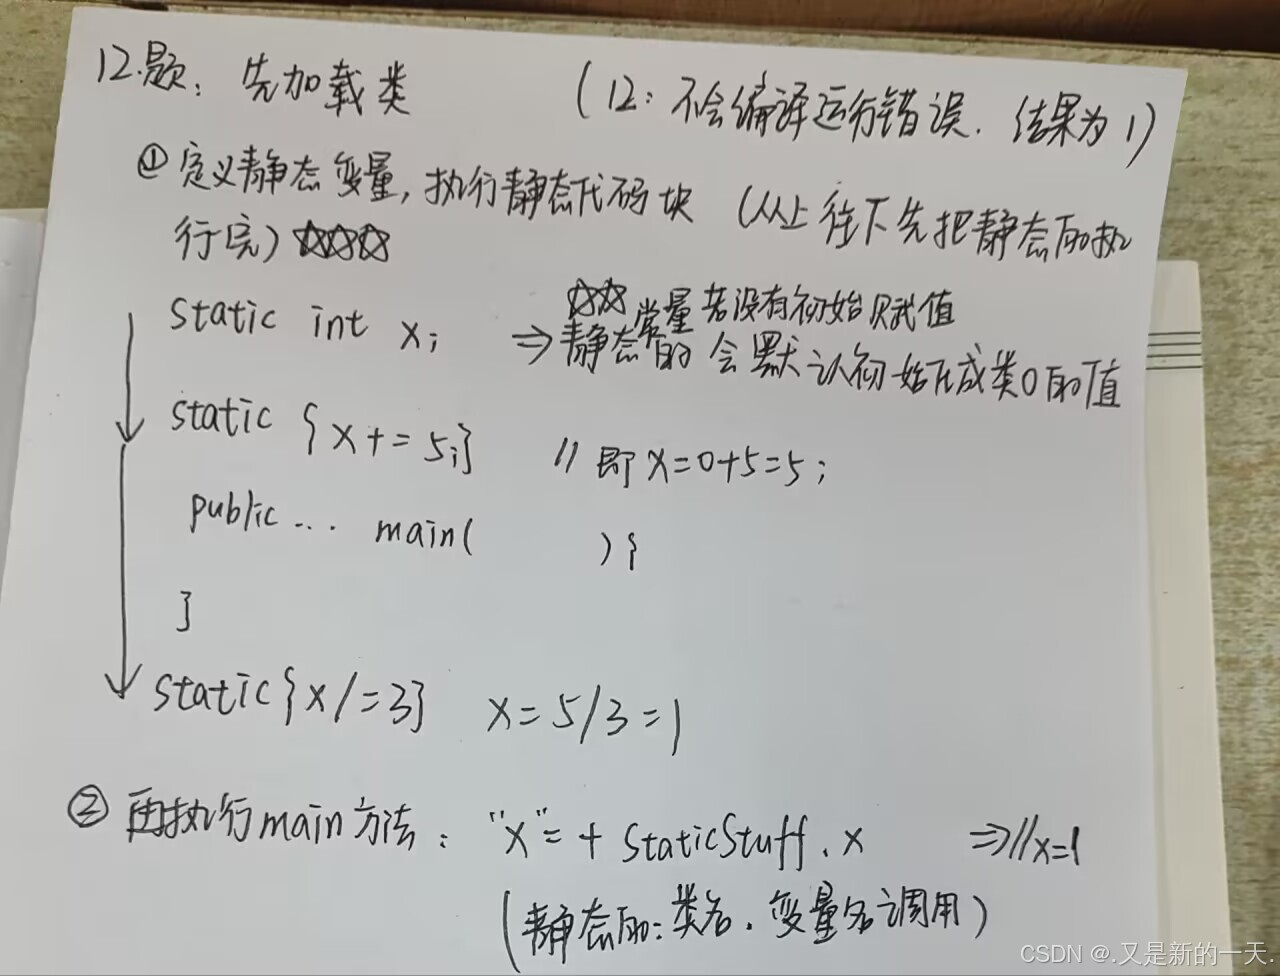 12.题：先加载类 （12：不会编译运行错误. 结果为1）
① 定义静态变量，执行静态代码块 （从上往下先把静态的执
行完）☆☆☆
☆☆ 常量若没有初始赋值
static int x; ⇒静态的 会默认初始化成类0的值
static {x+=5;} // 即x=0+5=5;
public... main( ){
}
static{x/=3} x=5/3=1
② 再执行main方法： "x"=+ StaticStuff.x ⇒//x=1
（静态的：类名.变量名调用）
CSDN @.又是新的一天.